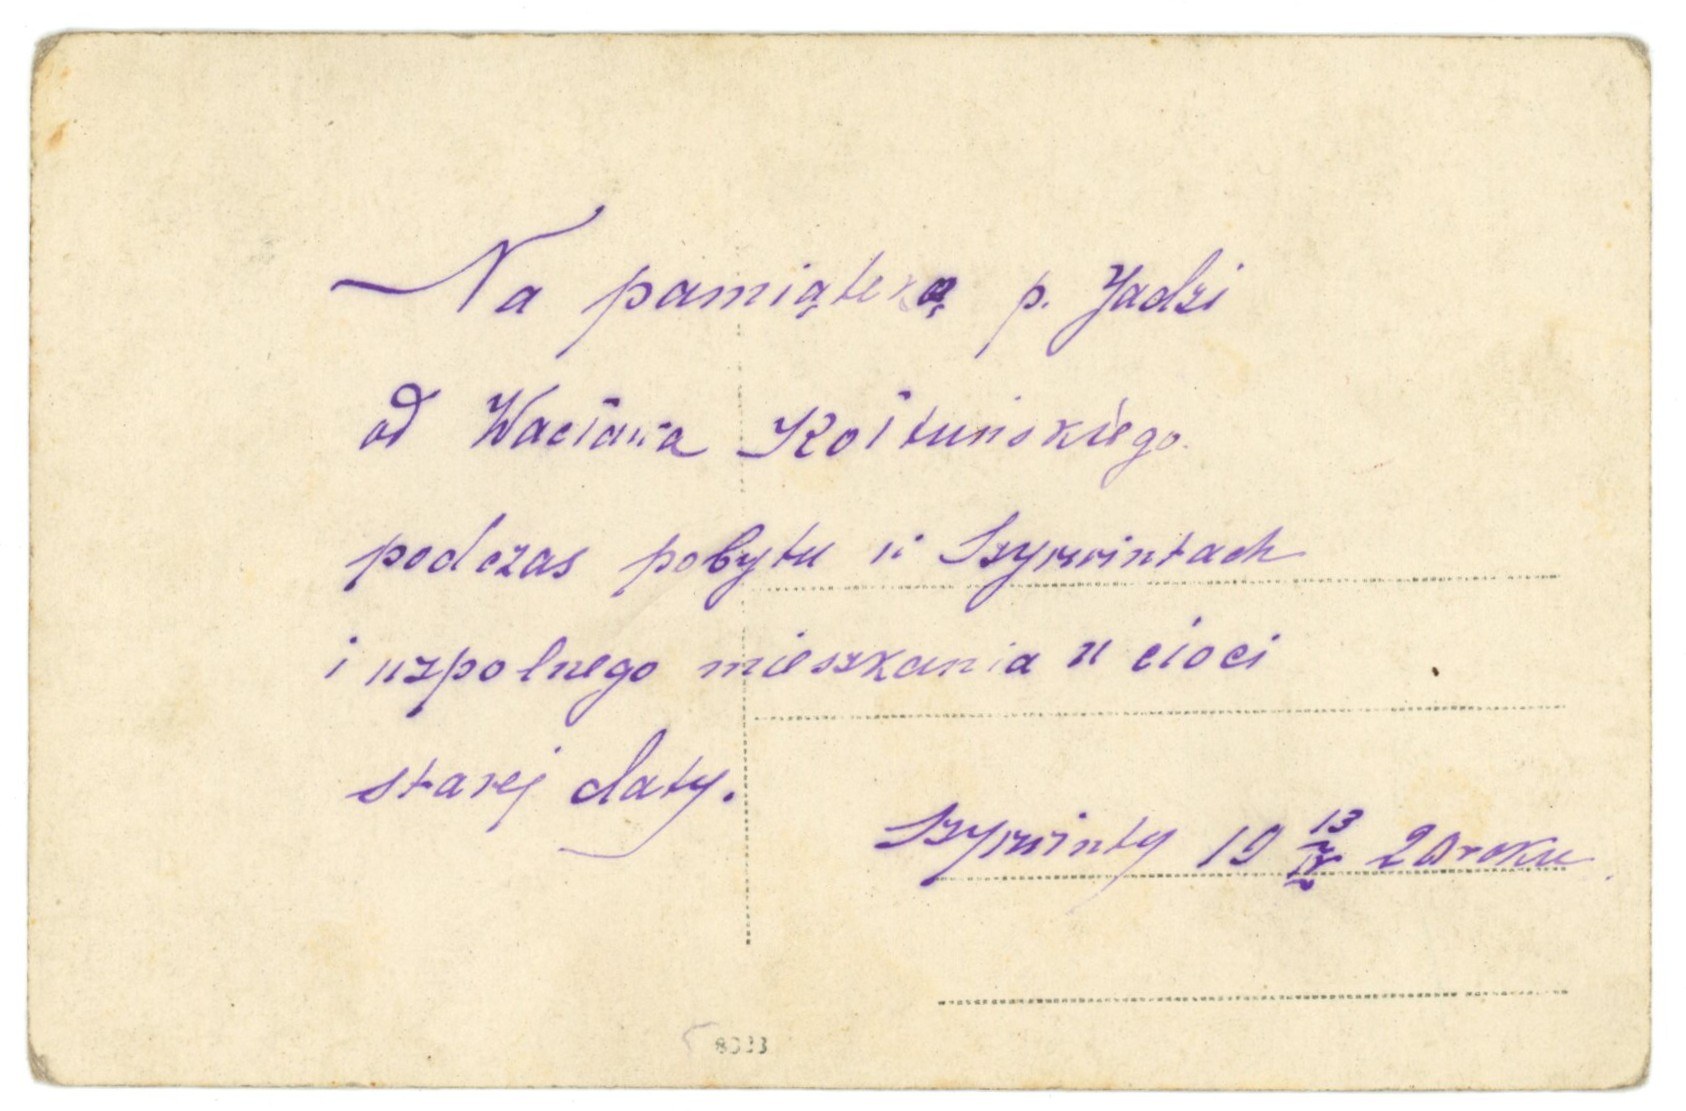 Na pamiątkę p. Jadzi
od Wacława Kołtuńskiego
podczas pobytu w Szyrwintach
i wzpolnego mieszkania u cioci
starej daty.
Szyrwinty 19 13/IV 20 roku
8033